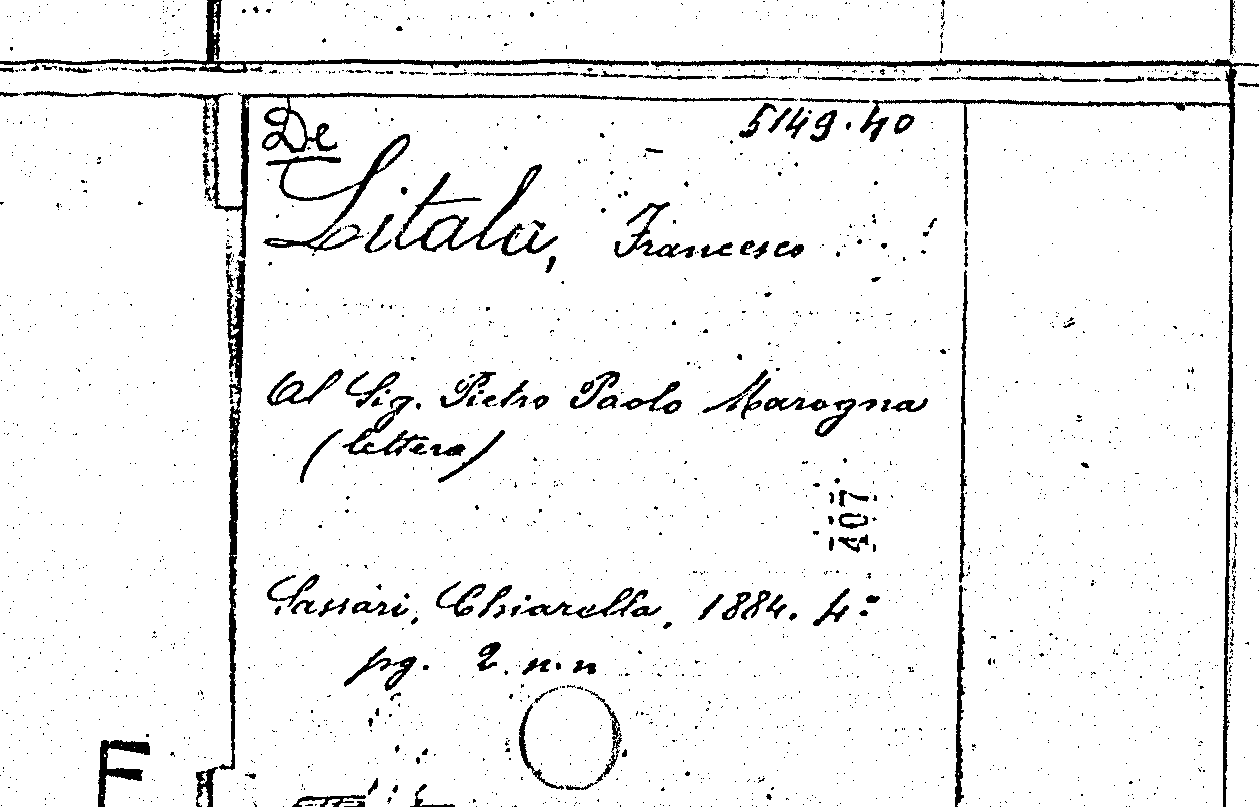 De
5149.40
Litala, Francesco
Al Sig. Pietro Paolo Marogna
(lettera)
407
Sassari, Chiarella, 1884. 4:
pg. 2 n.n
F